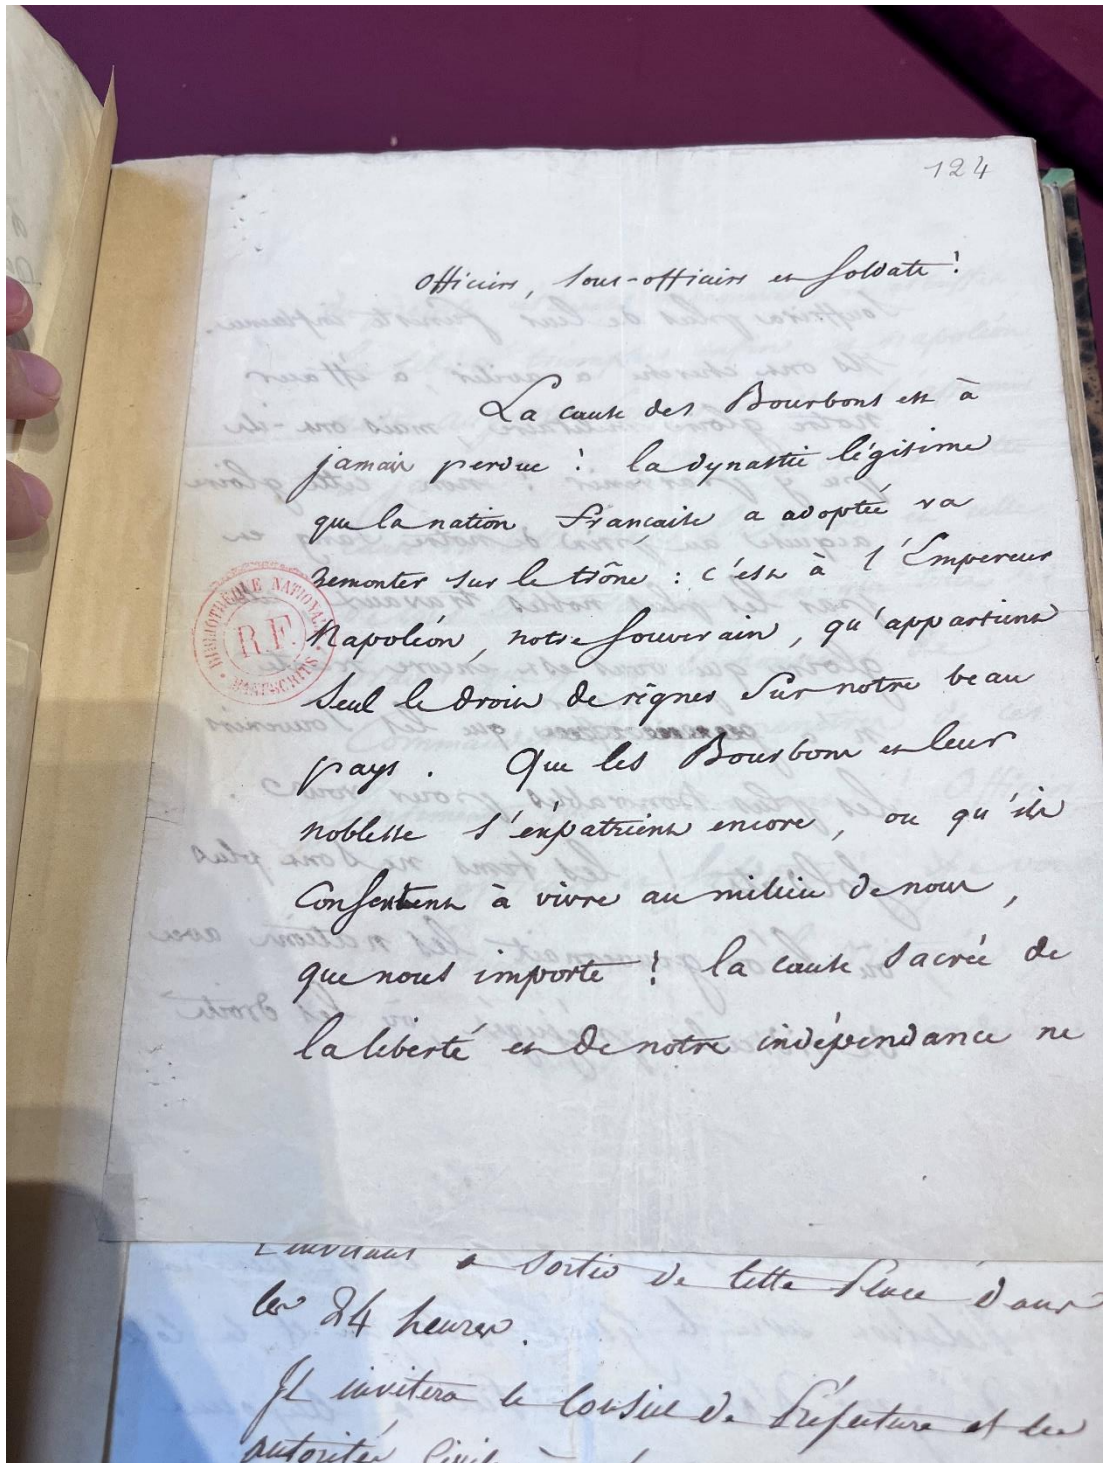 124
Officiers, Sous-officiers et Soldats !
La cause des Bourbons est à
jamais perdue ! la dynastie légitime
que la nation française a adoptée va
remonter sur le trône : c'est à l'Empereur
Napoléon, notre Souverain, qu'appartient
Seul le droit de règner sur notre beau
pays. Que les Bourbons et leur
noblesse s'expatrient encore, ou qu'ils
Consentent à vivre au milieu de nous,
que nous importe ! la cause sacrée de
la liberté et de notre indépendance ne
BIBLIOTHÈQUE NATIONALE
R.F.
MANUSCRITS
à sortir de cette Place dans
les 24 heures.
Il invitera le Conseil de Préfecture et les
autorités Civil